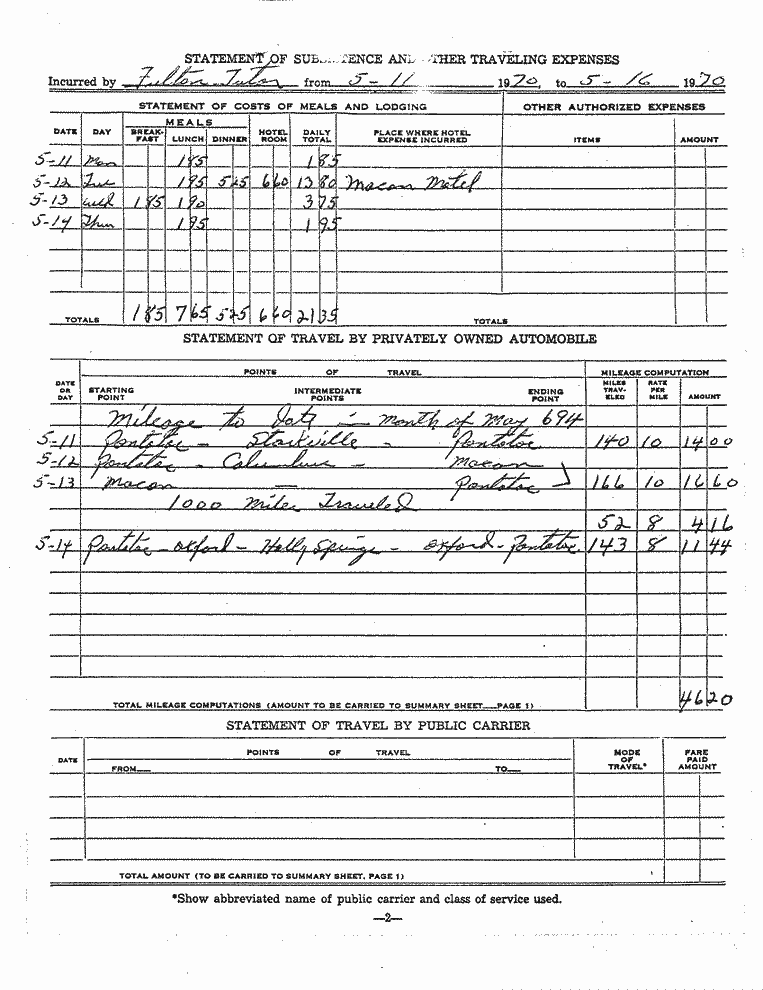 STATEMENT OF SUB TENCE AND THER TRAVELING EXPENSES
Incurred by Fulton Tutor from 5-11 1970, to 5-16 1970
STATEMENT OF COSTS OF MEALS AND LODGING OTHER AUTHORIZED EXPENSES
MEALS
DATE DAY BREAK-FAST LUNCH DINNER HOTEL ROOM DAILY TOTAL PLACE WHERE HOTEL EXPENSE INCURRED ITEMS AMOUNT
5-11 Mon 185 185
5-12 Tue 195 525 660 1380 Macon Motel
5-13 Wed 185 190 375
5-14 Thur 195 195
TOTALS 185 765 525 660 2135 TOTALS
STATEMENT OF TRAVEL BY PRIVATELY OWNED AUTOMOBILE
POINTS OF TRAVEL MILEAGE COMPUTATION
DATE OR DAY STARTING POINT INTERMEDIATE POINTS ENDING POINT MILES TRAV-ELED RATE PER MILE AMOUNT
Mileage to Date in month of May 694
5-11 Pontotoc - Starkville - Pontotoc 140 10 1400
5-12 Pontotoc - Columbus - Macon
5-13 Macon — Pontotoc 166 10 1660
1000 Miles Traveled
52 8 416
5-14 Pontotoc - Oxford - Holly Springs - Oxford - Pontotoc 143 8 1144
TOTAL MILEAGE COMPUTATIONS (AMOUNT TO BE CARRIED TO SUMMARY SHEET PAGE 1) 4620
STATEMENT OF TRAVEL BY PUBLIC CARRIER
DATE POINTS OF TRAVEL MODE OF TRAVEL* FARE PAID AMOUNT
FROM TO
TOTAL AMOUNT (TO BE CARRIED TO SUMMARY SHEET, PAGE 1)
*Show abbreviated name of public carrier and class of service used.
—2—